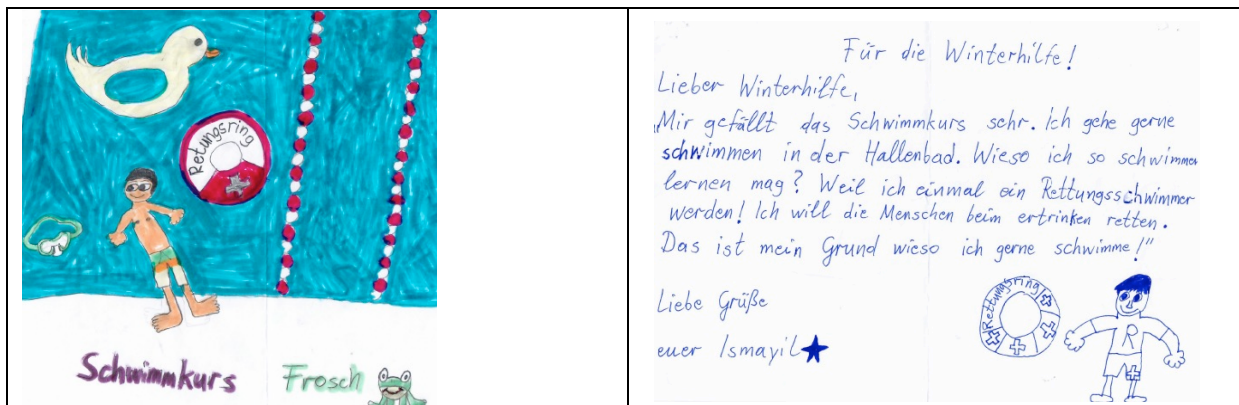 Retungsring
Schwimmkurs Frosch
Für die Winterhilfe!
Lieber Winterhilfe,
„Mir gefällt das Schwimmkurs sehr. Ich gehe gerne
schwimmen in der Hallenbad. Wieso ich so schwimmen
lernen mag? Weil ich einmal ein Rettungsschwimmer
werden! Ich will die Menschen beim ertrinken retten.
Das ist mein Grund wieso ich gerne schwimme!"
Liebe Grüße
euer Ismayil
Rettungsring
R